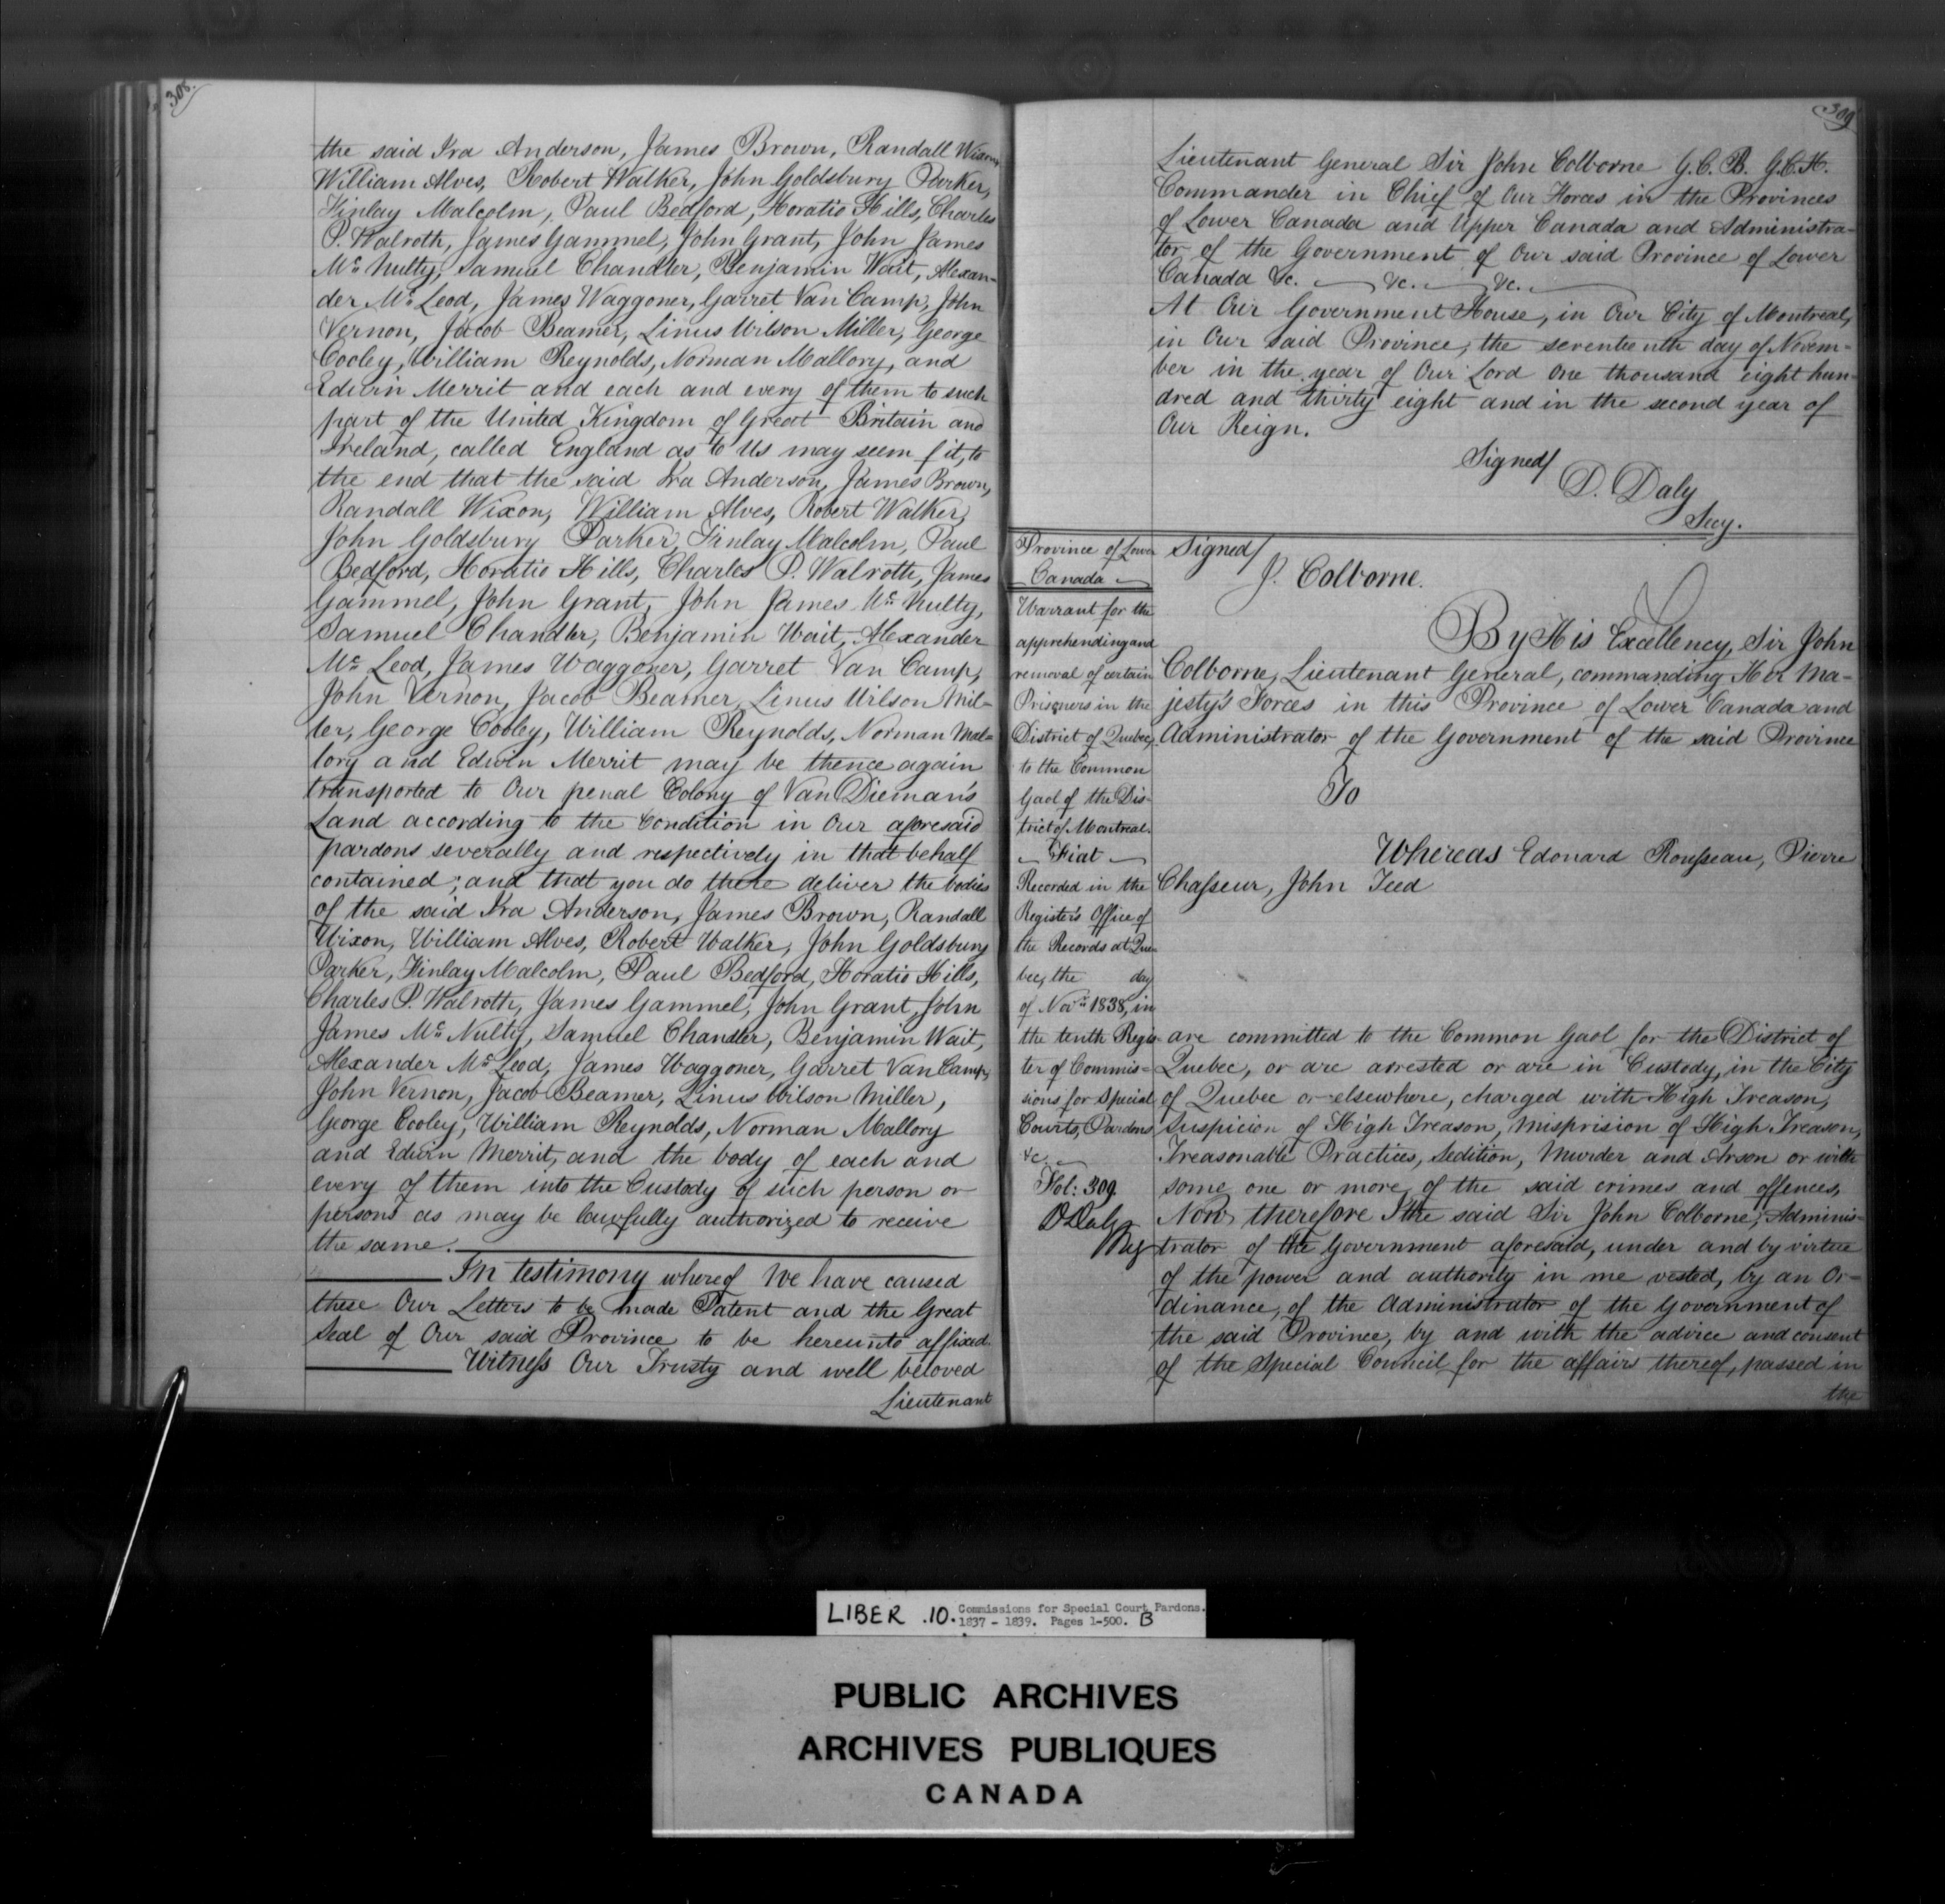 308.
the said Ira Anderson, James Brown, Randall Wixon
William Alves, Robert Walker, John Goldsbury Parker,
Finlay Malcolm, Paul Bedford, Horatio Hills, Charles
P. Walroth, James Gammel, John Grant, John James
Mc Nulty, Samuel Chandler, Benjamin Wait, Alexan-
der Mc Leod, James Waggoner, Garret Van Camp, John
Vernon, Jacob Beamer, Linus Wilson Miller, George
Cooley, William Reynolds, Norman Mallory, and
Edwin Merrit and each and every of them to such
part of the United Kingdom of Great Britain and
Ireland, called England as to Us may seem fit, to
the end that the said Ira Anderson, James Brown,
Randall Wixon, William Alves, Robert Walker,
John Goldsbury Parker, Finlay Malcolm, Paul
Bedford, Horatio Hills, Charles P. Walroth, James
Gammel, John Grant, John James Mc Nulty,
Samuel Chandler, Benjamin Wait, Alexander
Mc Leod, James Waggoner, Garret Van Camp,
John Vernon, Jacob Beamer, Linus Wilson Mil-
ler, George Cooley, William Reynolds, Norman Mal-
lory and Edwin Merrit may be thence again
transported to Our penal Colony of Van Dieman's
Land according to the Condition in Our aforesaid
pardons severally and respectively in that behalf
contained; and that you do there deliver the bodies
of the said Ira Anderson, James Brown, Randall
Wixon, William Alves, Robert Walker, John Goldsbury
Parker, Finlay Malcolm, Paul Bedford, Horatio Hills,
Charles P. Walroth, James Gammel, John Grant, John
James Mc Nulty, Samuel Chandler, Benjamin Wait,
Alexander Mc Leod, James Waggoner, Garret Van Camp,
John Vernon, Jacob Beamer, Linus Wilson Miller,
George Cooley, William Reynolds, Norman Mallory
and Edwin Merrit, and the body of each and
every of them into the Custody of such person or
persons as may be lawfully authorized to receive
the same.
In testimony whereof We have caused
these Our Letters to be made Patent and the Great
Seal of Our said Province to be hereunto affixed.
Witness Our Trusty and well beloved
Lieutenant
309
Lieutenant General Sir John Colborne G.C.B. G.C.H.
Commander in Chief of Our Forces in the Provinces
of Lower Canada and Upper Canada and Administra-
tor of the Government of Our said Province of Lower
Canada &c. &c. &c.
At Our Government House, in Our City of Montreal,
in Our said Province, the seventeenth day of Novem-
ber in the year of Our Lord One thousand eight hun-
dred and thirty eight and in the second year of
Our Reign.
Signed/
D. Daly
Secy.
Province of Lower
Canada
Warrant for the
apprehending and
removal of certain
Prisoners in the
District of Quebec,
to the Common
Gaol of the Dis-
trict of Montreal.
Fiat
Recorded in the
Register's Office of
the Records at Que-
bec, the day
of Novr. 1838, in
the tenth Regis-
ter of Commis-
sions for Special
Courts, Pardons
&c
Fol: 309
D Daly
Reg
Signed/
J. Colborne.
By His Excellency, Sir John
Colborne, Lieutenant General, commanding Her Ma-
jesty's Forces in this Province of Lower Canada and
Administrator of the Government of the said Province
To
Whereas Edouard Rousseau, Pierre
Chasseur, John Teed
are committed to the Common Gaol for the District of
Quebec, or are arrested or are in Custody, in the City
of Quebec or elsewhere, charged with High Treason,
Suspicion of High Treason, Misprision of High Treason,
Treasonable Practices, Sedition, Murder and Arson or with
some one or more of the said crimes and offences,
Now therefore I the said Sir John Colborne, Adminis-
trator of the Government aforesaid, under and by virtue
of the power and authority in me vested, by an Or-
dinance, of the Administrator of the Government of
the said Province, by and with the advice and consent
of the Special Council for the affairs thereof, passed in
the
LIBER .10. Commissions for Special Court Pardons.
1837 - 1839. Pages 1-500. B
PUBLIC ARCHIVES
ARCHIVES PUBLIQUES
CANADA